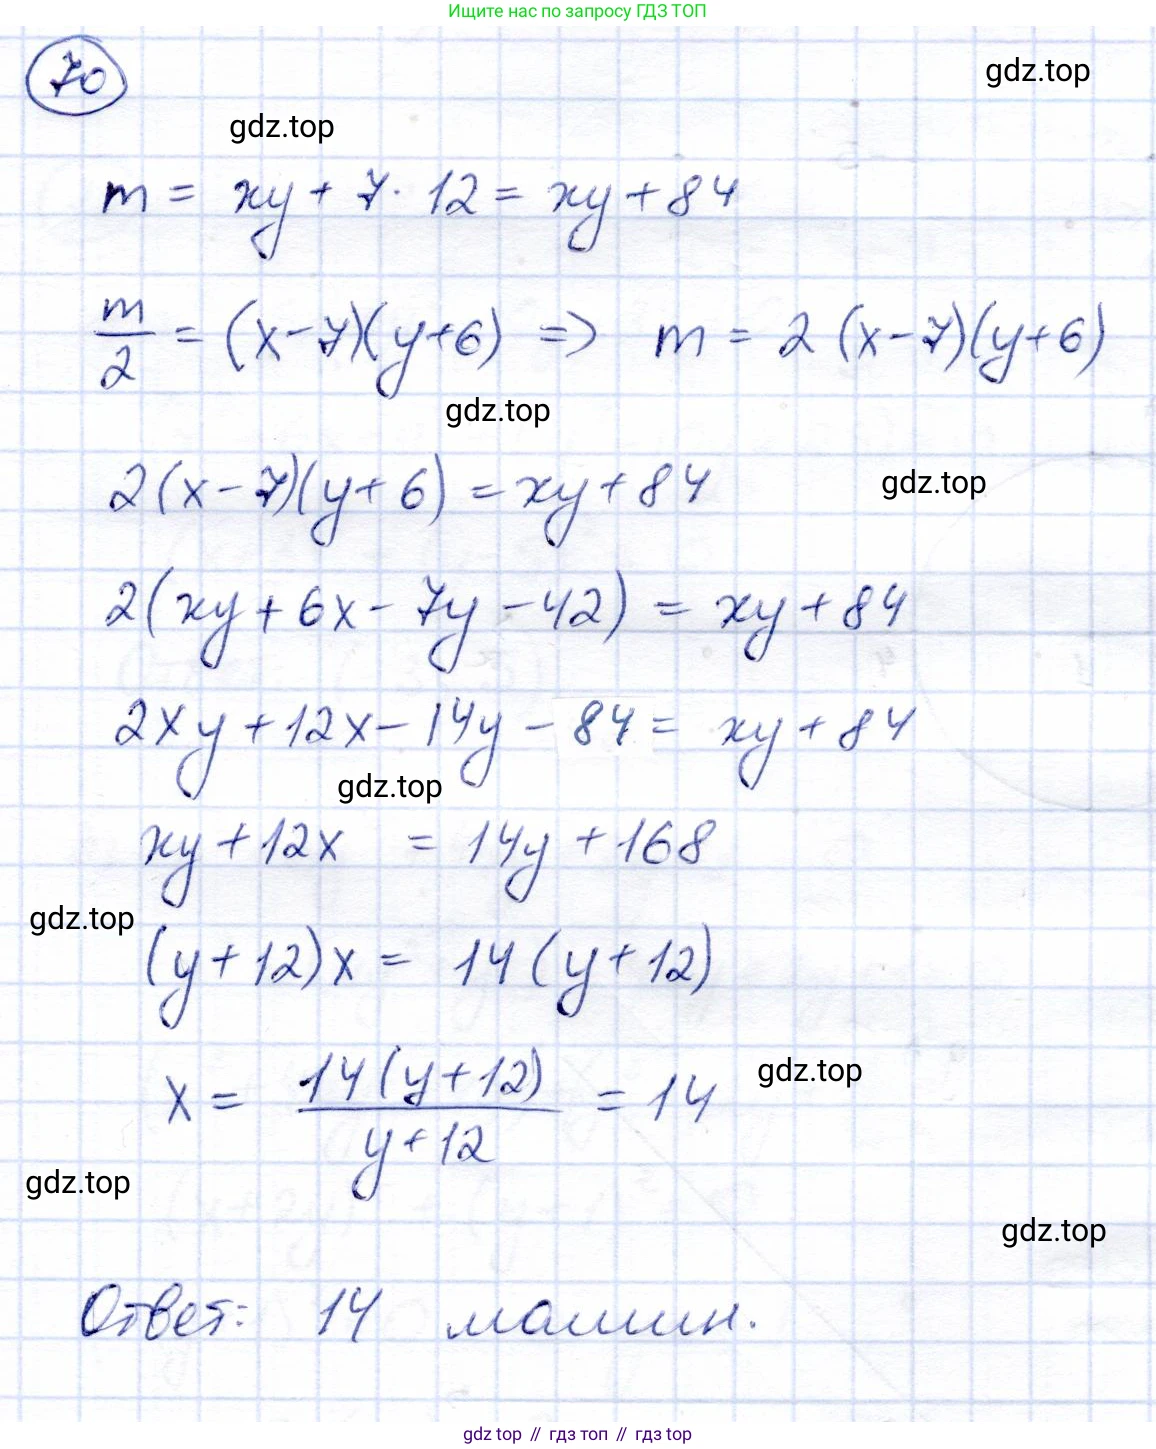 Ищите нас по запросу ГДЗ ТОП
70
gdz.top
gdz.top
m = xy + 7 · 12 = xy + 84
m/2 = (x - 7)(y + 6) => m = 2 (x - 7)(y + 6)
gdz.top
2(x - 7)(y + 6) = xy + 84
gdz.top
2(xy + 6x - 7y - 42) = xy + 84
2xy + 12x - 14y - 84 = xy + 84
gdz.top
xy + 12x = 14y + 168
gdz.top
(y + 12)x = 14 (y + 12)
x = 14(y + 12)/y + 12 = 14
gdz.top
gdz.top
gdz.top
Ответ: 14 машин.
gdz top // гдз топ // гдз top